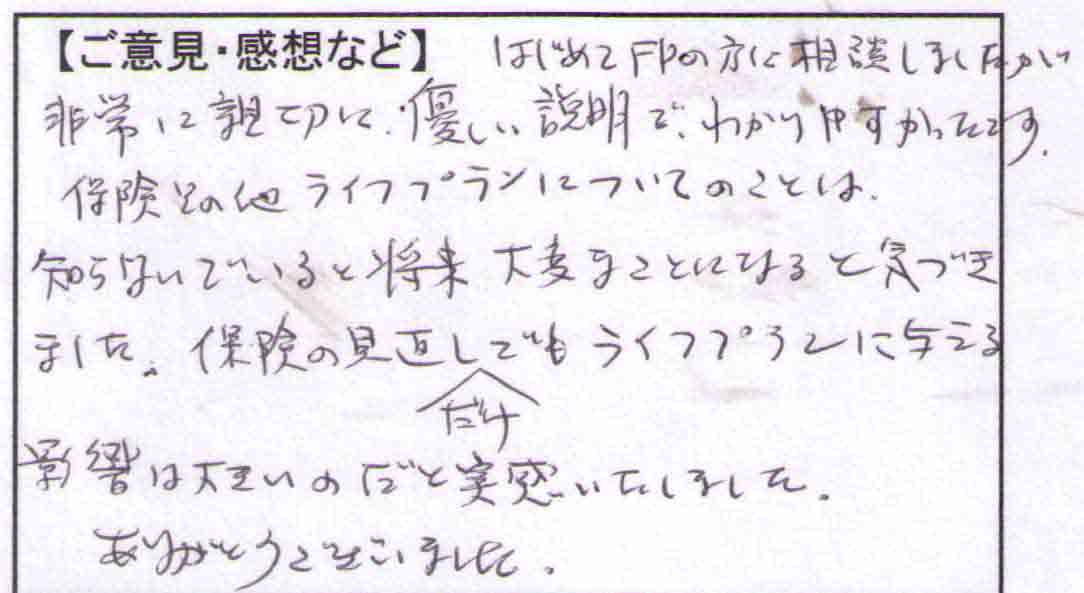 【ご意見・感想など】 はじめてFPの方に相談しましたが
非常に親切に、優しい説明で、わかりやすかったです。
保険その他ライフプランについてのことは、
知らないでいると将来大変なことになると気づき
ました。保険の見直しでもライフプランに与える
だけ
影響は大きいのだと実感いたしました。
ありがとうございました。